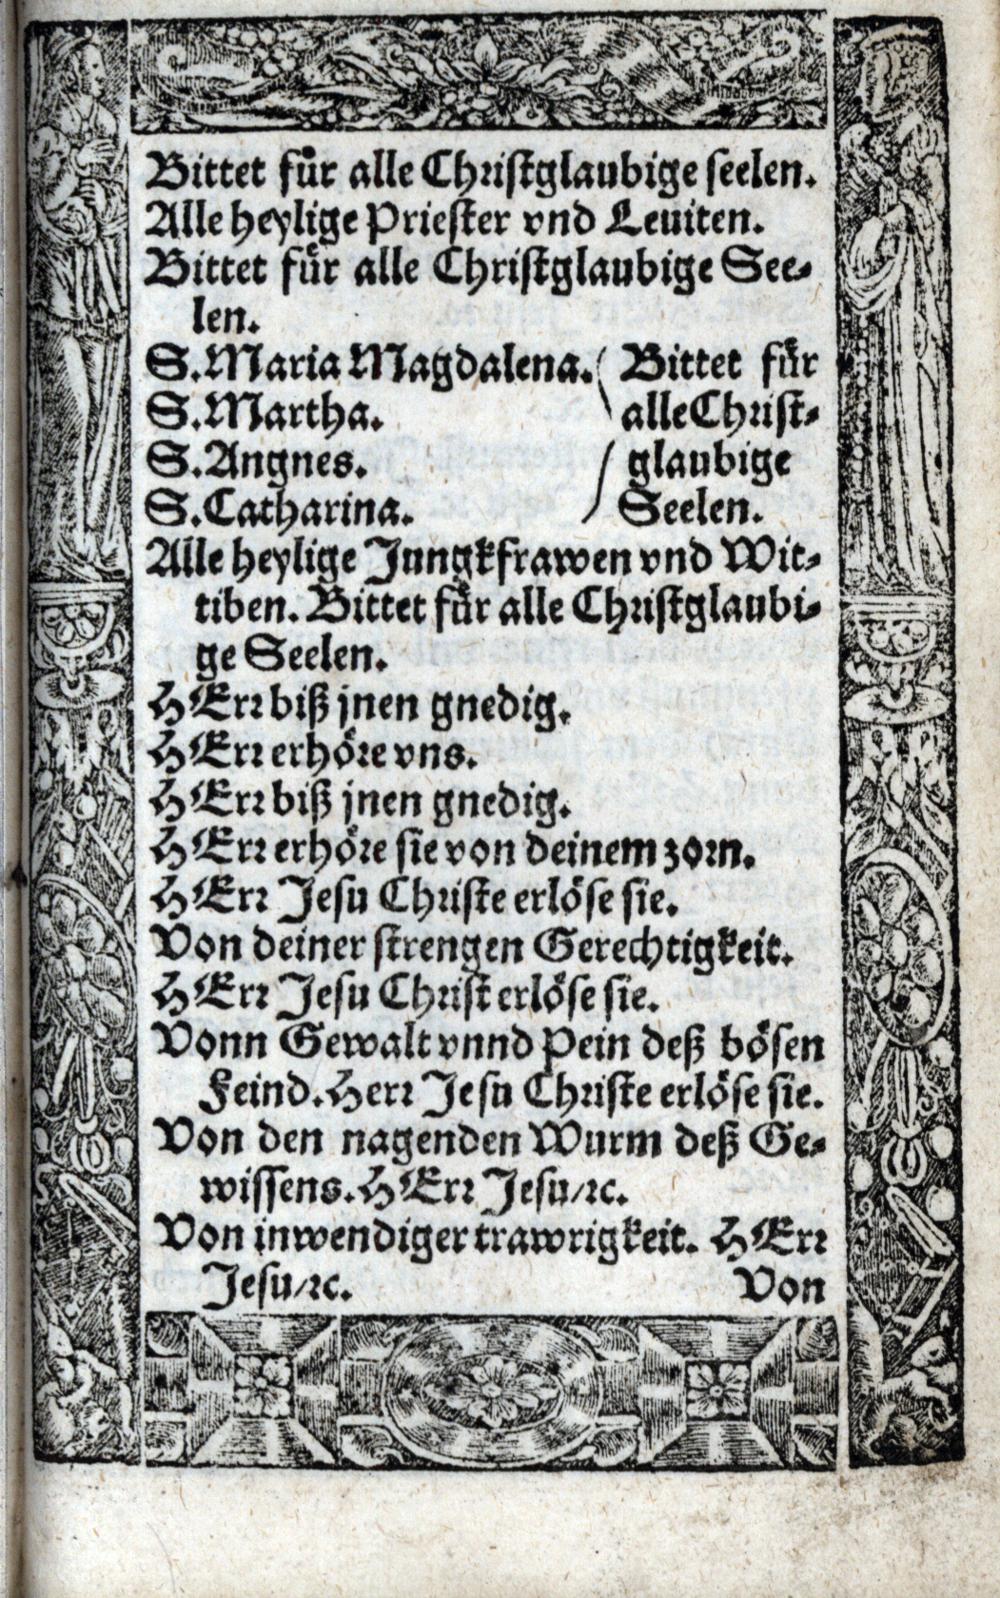 Bittet fuͤr alle Chriſtglaubige ſeelen.
Alle heylige Prieſter vnd Leuiten.
Bittet fuͤr alle Chriſtglaubige See⸗
len.
S. Maria Magdalena. ( Bittet fuͤr
S. Martha. alle Chriſt⸗
S. Angnes. glaubige
S. Catharina. Seelen.
Alle heylige Jungkfrawen vnd Wit⸗
tiben. Bittet fuͤr alle Chriſtglaubi⸗
ge Seelen.
HErr biß jnen gnedig.
HErr erhoͤre vns.
HErr biß jnen gnedig.
HErr erhoͤre ſie von deinem zorn.
HErr Jeſu Chriſte erloͤſe ſie.
Von deiner ſtrengen Gerechtigkeit.
HErr Jeſu Chriſt erloͤſe ſie.
Vonn Gewalt vnnd Pein deß boͤſen
Feind. Herr Jeſu Chriſte erloͤſe ſie.
Von den nagenden Wurm deß Ge⸗
wiſſens. HErr Jeſu/ꝛc.
Von inwendiger trawrigkeit. HErr
Jeſu/ꝛc. Von